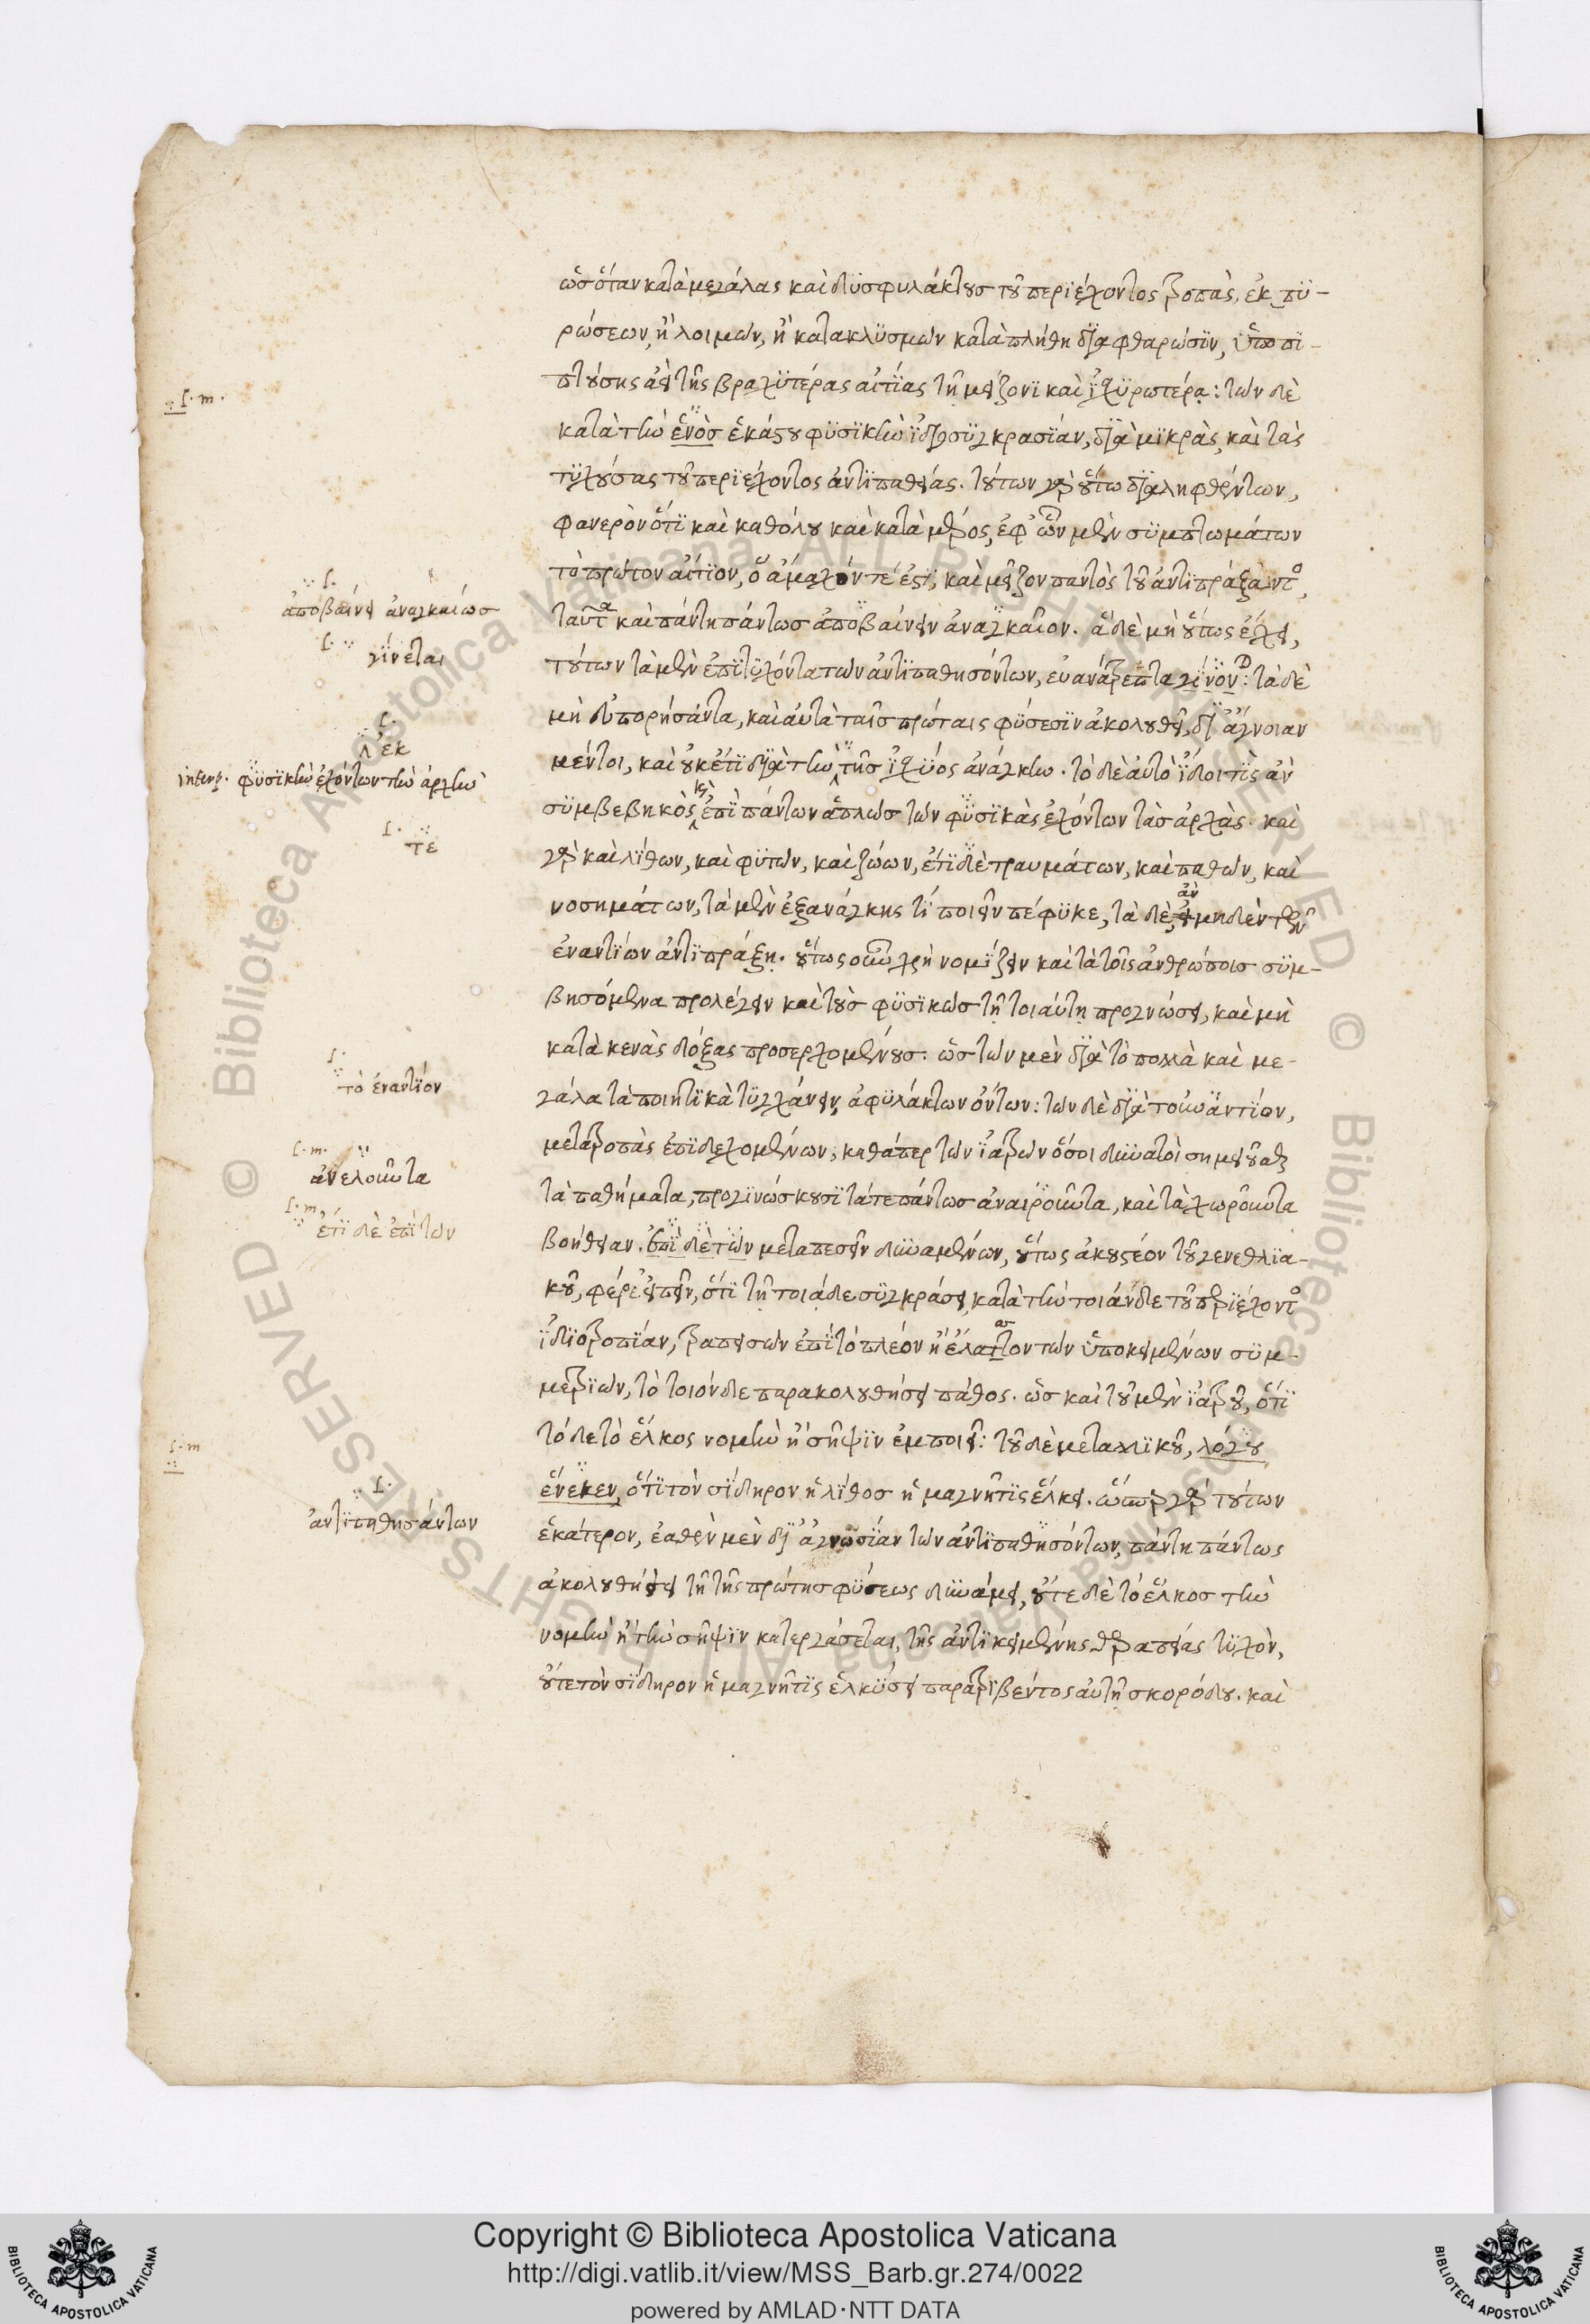 ὡς ὅταν κατὰ μεγάλας καὶ δυσφυλάκτους τοῦ περιέχοντος τροπὰς, ἐκ πυ-
ρώσεων, ἢ λοιμῶν, ἢ κατακλυσμῶν κατὰ πλήθη διαφθαρῶσιν, ὑποπι-
πτούσης ἀεὶ τῆς βραχυτέρας αἰτίας τῇ μείζονι καὶ ἰσχυροτέρᾳ: τῶν δὲ
κατὰ τὴν ἑνὸς ἑκάστου φυσικὴν ἰδιοσυγκρασίαν, διὰ μικρὰς, καὶ τὰς
τυχούσας τοῦ περιέχοντος ἀντιπαθείας. τούτων γὰρ οὕτω διαληφθέντων,
φανερὸν ὅτι καὶ καθόλου καὶ κατὰ μέρος, ἐφ' ὧν μὲν συμπτωμάτων
τὸ πρῶτον αἴτιον, ὃ ἄμαχόν τέ ἐστι, καὶ μεῖζον παντὸς τοῦ ἀντιπράξαντος,
ταῦτα καὶ πάντη πάντως ἀποβαίνειν ἀναγκαῖον. ἃ δὲ μὴ οὕτως ἔχει,
τούτων τὰ μὲν ἐπιτυχόντα τῶν ἀντιπαθησόντων, εὐανάτρεπτα γίνον: τὰ δὲ
μὴ εὐπορήσαντα, καὶ αὐτὰ ταῖς πρώταις φύσεσιν ἀκολουθεῖ, δι' ἄγνοιαν
μέντοι, καὶ οὐκέτι διὰ τὴν τῆς ἰσχύος ἀνάγκην. τὸ δὲ αὐτὸ ἴδοι τις ἂν
συμβεβηκὸς καὶ ἐπὶ πάντων ἁπλῶς τῶν φυσικὰς ἐχόντων τὰς ἀρχὰς. καὶ
γὰρ καὶ λίθων, καὶ φυτῶν, καὶ ζώων, ἔτι δὲ τραυμάτων, καὶ παθῶν, καὶ
νοσημάτων, τὰ μὲν ἐξ ἀνάγκης τί ποιεῖν πέφυκε, τὰ δὲ, ἂν μηδὲν τῶν
ἐναντίων ἀντιπράξῃ. οὕτως οὖν χρὴ νομίζειν καὶ τὰ τοῖς ἀνθρώποις συμ-
βησόμενα προλέγειν καὶ τοὺς φυσικῶς τῇ τοιαύτῃ προγνώσει, καὶ μὴ
κατὰ κενὰς δόξας προσερχομένους: ὡς τῶν μὲν διὰ τὸ πολλὰ καὶ με-
γάλα τὰ ποιητικὰ τυγχάνειν, ἀφυλάκτων ὄντων: τῶν δὲ διὰ τοὐναντίον,
μετατροπὰς ἐπιδεχομένων, καθάπερ τῶν ἰατρῶν ὅσοι δυνατοὶ σημειοῦσθαι
τὰ παθήματα, προγινώσκουσι τά τε πάντως ἀναιροῦντα, καὶ τὰ χωροῦντα
βοήθειαν. ἐπὶ δὲ τῶν μεταπεσεῖν δυναμένων, οὕτως ἀκουστέον τοῦ γενεθλια-
κοῦ, φέρ' εἰπεῖν, ὅτι τῇ τοιᾷδε συγκράσει, κατὰ τὴν τοιάνδε τοῦ περιέχοντος
ἰδιοτροπίαν, τραπεισῶν ἐπὶ τὸ πλέον ἢ ἔλαττον τῶν ὑποκειμένων συμ-
μετριῶν, τὸ τοιόνδε παρακολουθήσει πάθος. ὡς καὶ τοῦ μὲν ἰατροῦ, ὅτι
τόδε τὸ ἕλκος νομὴν ἢ σῆψιν ἐμποιεῖ: τοῦ δὲ μεταλλικοῦ, λόγου
ἕνεκεν, ὅτι τὸν σίδηρον ἡ λίθος ἡ μαγνῆτις ἕλκει. ὥσπερ γὰρ τούτων
ἑκάτερον, ἐαθὲν μὲν δι' ἀγνωσίαν τῶν ἀντιπαθησόντων, πάντη πάντως
ἀκολουθήσει τῇ τῆς πρώτης φύσεως δυνάμει, οὔτε δὲ τὸ ἕλκος τὴν
νομὴν ἢ τὴν σῆψιν κατεργάσεται, τῆς ἀντικειμένης θεραπείας τυχὸν,
οὔτε τὸν σίδηρον ἡ μαγνῆτις ἑλκύσει παρατριβέντος αὐτῇ σκορόδου. καὶ
f. m.
f.
ἀποβαίνει ἀναγκαίως
f.
γίνεται
f.
ἐκ
φυσικὴν ἐχόντων τὴν ἀρχὴν
f.
τε
f.
τὸ ἐναντίον
f. m.
ἀνελοῦντα
f. m.
ἔτι δὲ ἐπὶ τῶν
f. m
f.
ἀντιπαθησάντων
© Biblioteca Apostolica Vaticana ALL RIGHTS RESERVED
© Biblioteca Apostolica Vaticana ALL RIGHTS RESERVED
BIBLIOTECA APOSTOLICA VATICANA
Copyright © Biblioteca Apostolica Vaticana
http://digi.vatlib.it/view/MSS_Barb.gr.274/0022
powered by AMLAD·NTT DATA
BIBLIOTECA APOSTOLICA VATICANA